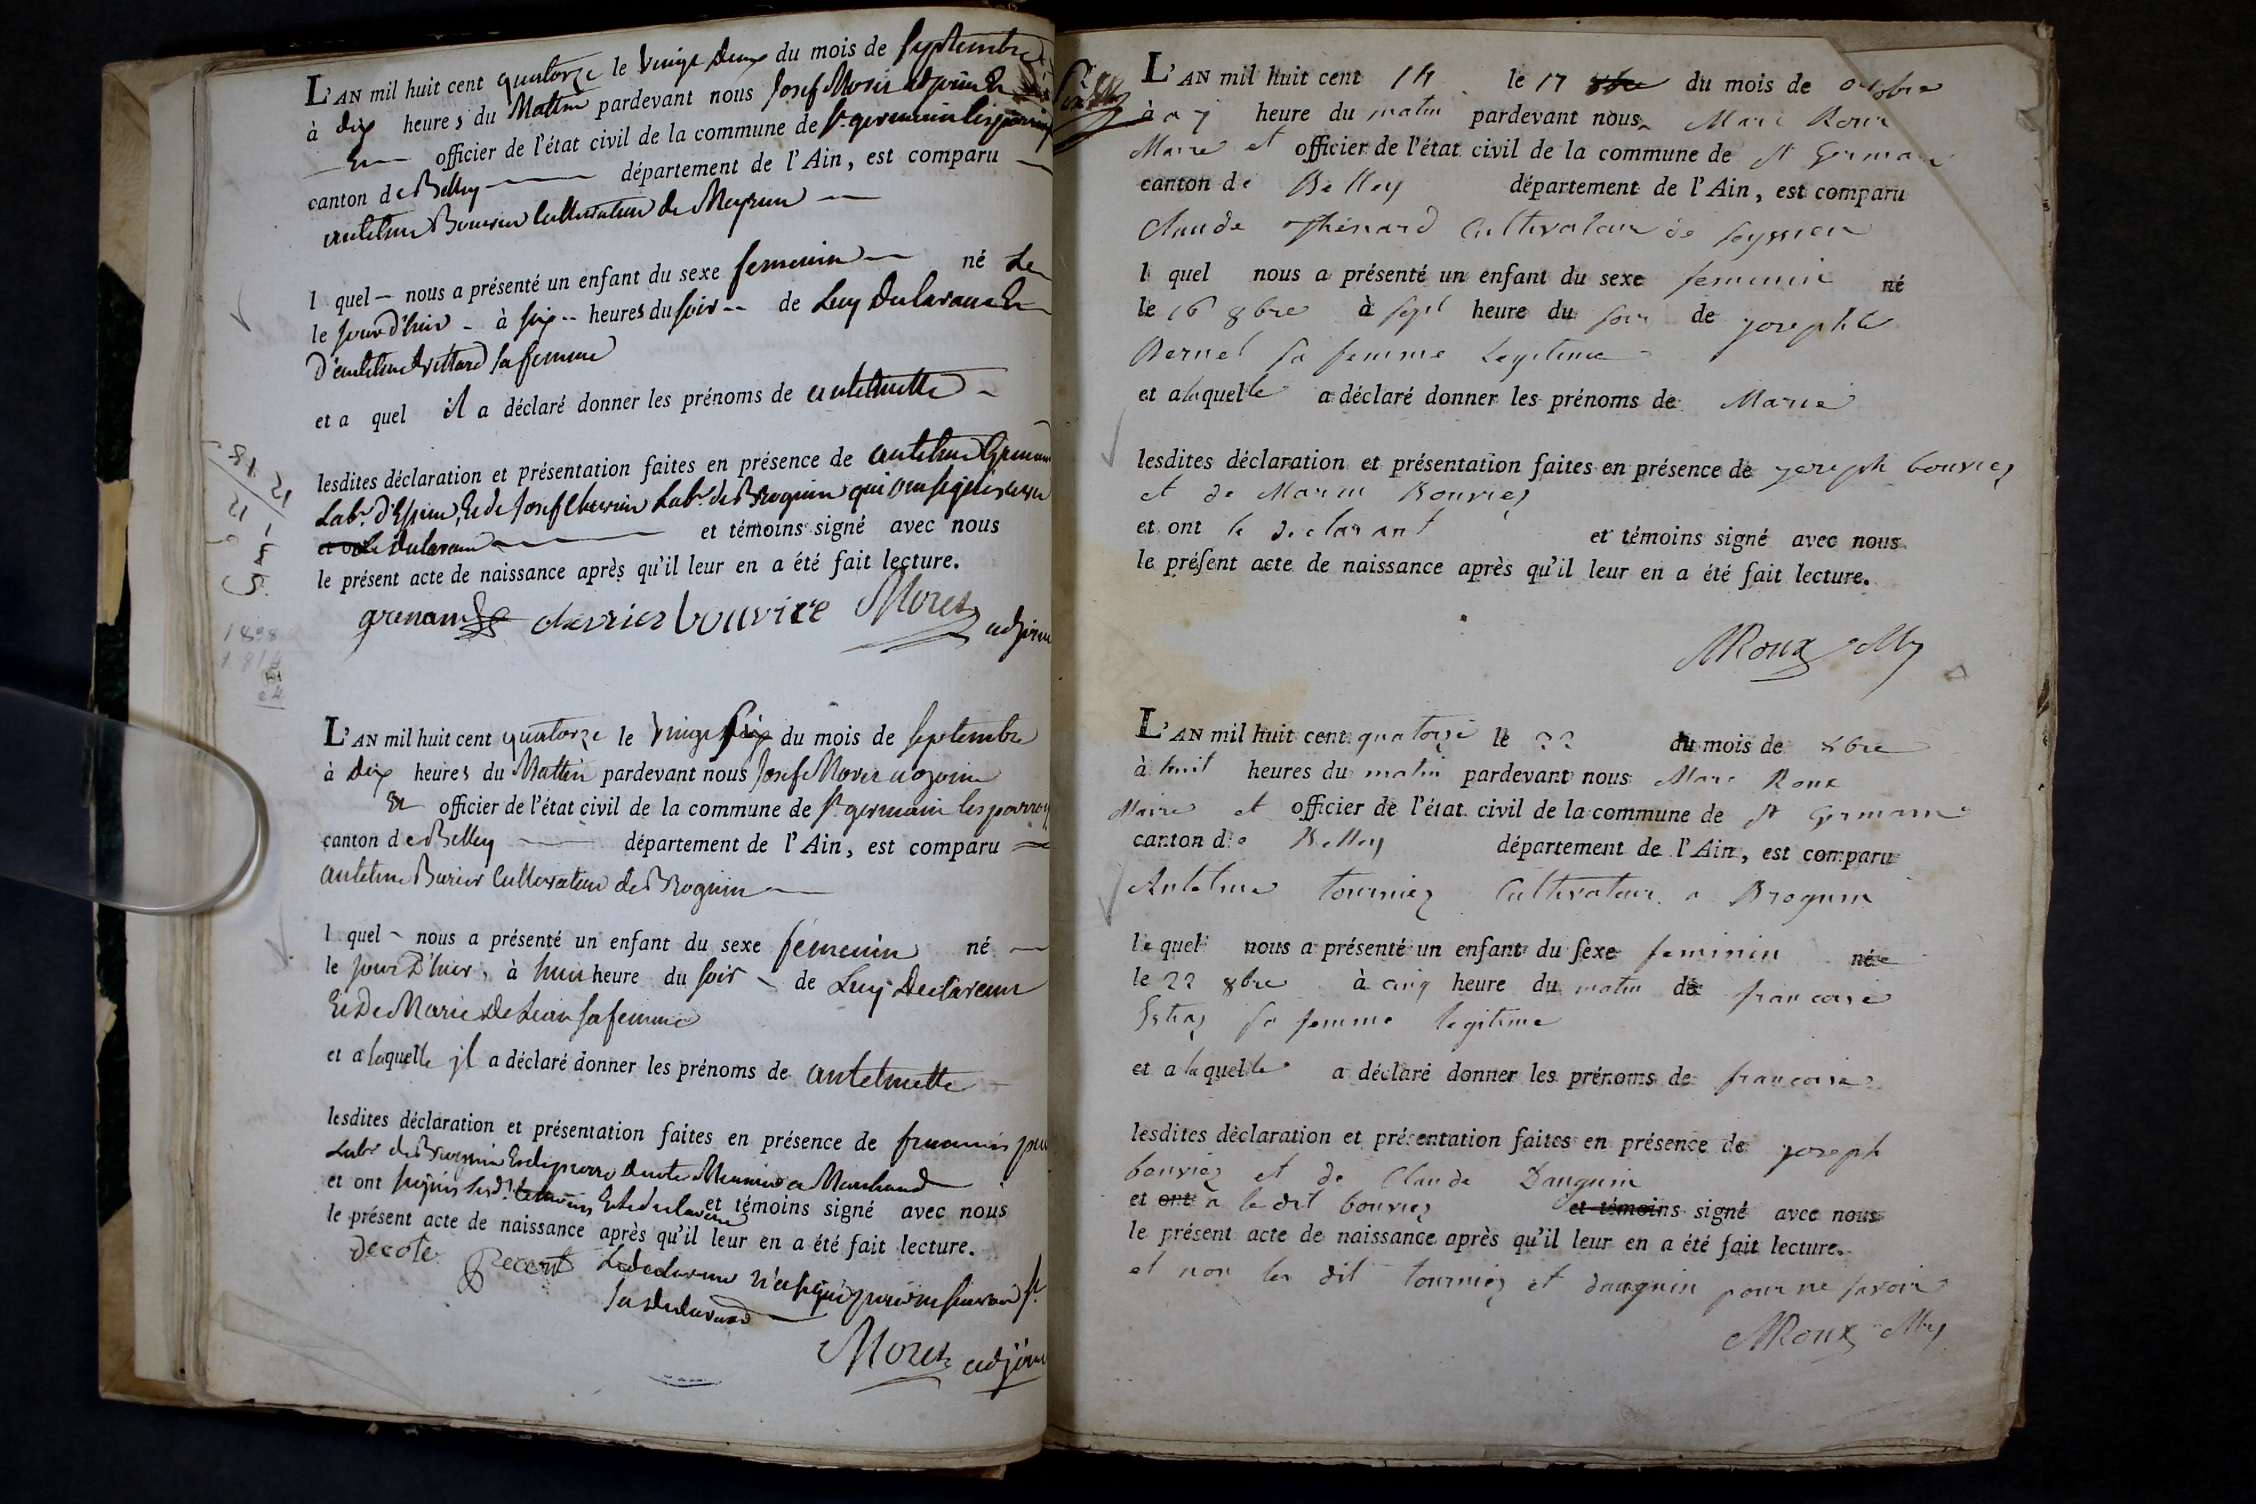 L'AN mil huit cent quatorze le vingt deux du mois de septembre
à dix heures du Mattin pardevant nous Josef Morer adjoint Et
Et officier de l'état civil de la commune de St germain les paroisses
canton de Belley département de l'Ain, est comparu
antelme Bouvier Cultivateur de Meyrieu
l quel nous a présenté un enfant du sexe femenin né de
le jour d'hier à six heures du soir de Luy declarant Et
D'antelme villard sa femme
et a quel il a déclaré donner les prénoms de antelmette
lesdites déclaration et présentation faites en présence de antelme
Labr. d' Et de Josef Labr. de Brognin qui ont signés avec
et ont Le declarant et témoins signé avec nous
le présent acte de naissance après qu'il leur en a été fait lecture.
chevrier bouvier Morer adjoint
L'AN mil huit cent quatorze le vingt six du mois de septembre
à dix heures du Mattin pardevant nous Josef Morer adjoint
Et officier de l'état civil de la commune de St germain les paroisses
canton de Belley département de l'Ain, est comparu
antelme Cultivateur de Brognin
l quel nous a présenté un enfant du sexe femenin né
le jour D'hier, à huit heure du soir de Luy Declarant
Et De Marie sa femme
et a laquelle jl a déclaré donner les prénoms de antelmette
lesdites déclaration et présentation faites en présence de francois
Labr de Brognin Et de pierre Marchand
et ont signés Et le declarant et témoins signé avec nous
le présent acte de naissance après qu'il leur en a été fait lecture.
decote Le declarant n'a signé pour ne savoir
Morer adjoint
L'AN mil huit cent 14 le 17 8bre du mois de octobre
à 7 heure du matin pardevant nous Marc Roux
Maire et officier de l'état civil de la commune de St Germain
canton de Belley département de l'Ain, est comparu
Claude Thénard Cultivateur de
l quel nous a présenté un enfant du sexe feminin né
le 16 8bre à sept heure du soir de josephte
Bernet sa femme Legitime
et a laquelle a déclaré donner les prénoms de Marie
lesdites déclaration et présentation faites en présence de joseph bouvier
et de Marin Bouvier
et ont le declarant et témoins signé avec nous
le présent acte de naissance après qu'il leur en a été fait lecture.
MRoux
L'AN mil huit cent quatorze le 22 du mois de 8bre
à huit heures du matin pardevant nous Marc Roux
Maire et officier de l'état civil de la commune de St Germain
canton de Belley département de l'Ain, est comparu
Antelme tournier Cultivateur a Brognin
le quel nous a présenté un enfant du sexe feminin née
le 22 8bre à cinq heure du matin de francoise
sa femme legitime
et a laquelle a déclaré donner les prénoms de francoise
lesdites déclaration et présentation faites en présence de joseph
bouvier et de Claude Danguin
et ont a le dit bouvier et témoins signé avec nous
le présent acte de naissance après qu'il leur en a été fait lecture.
et non les dit tournier et danguin pour ne savoir
MRoux